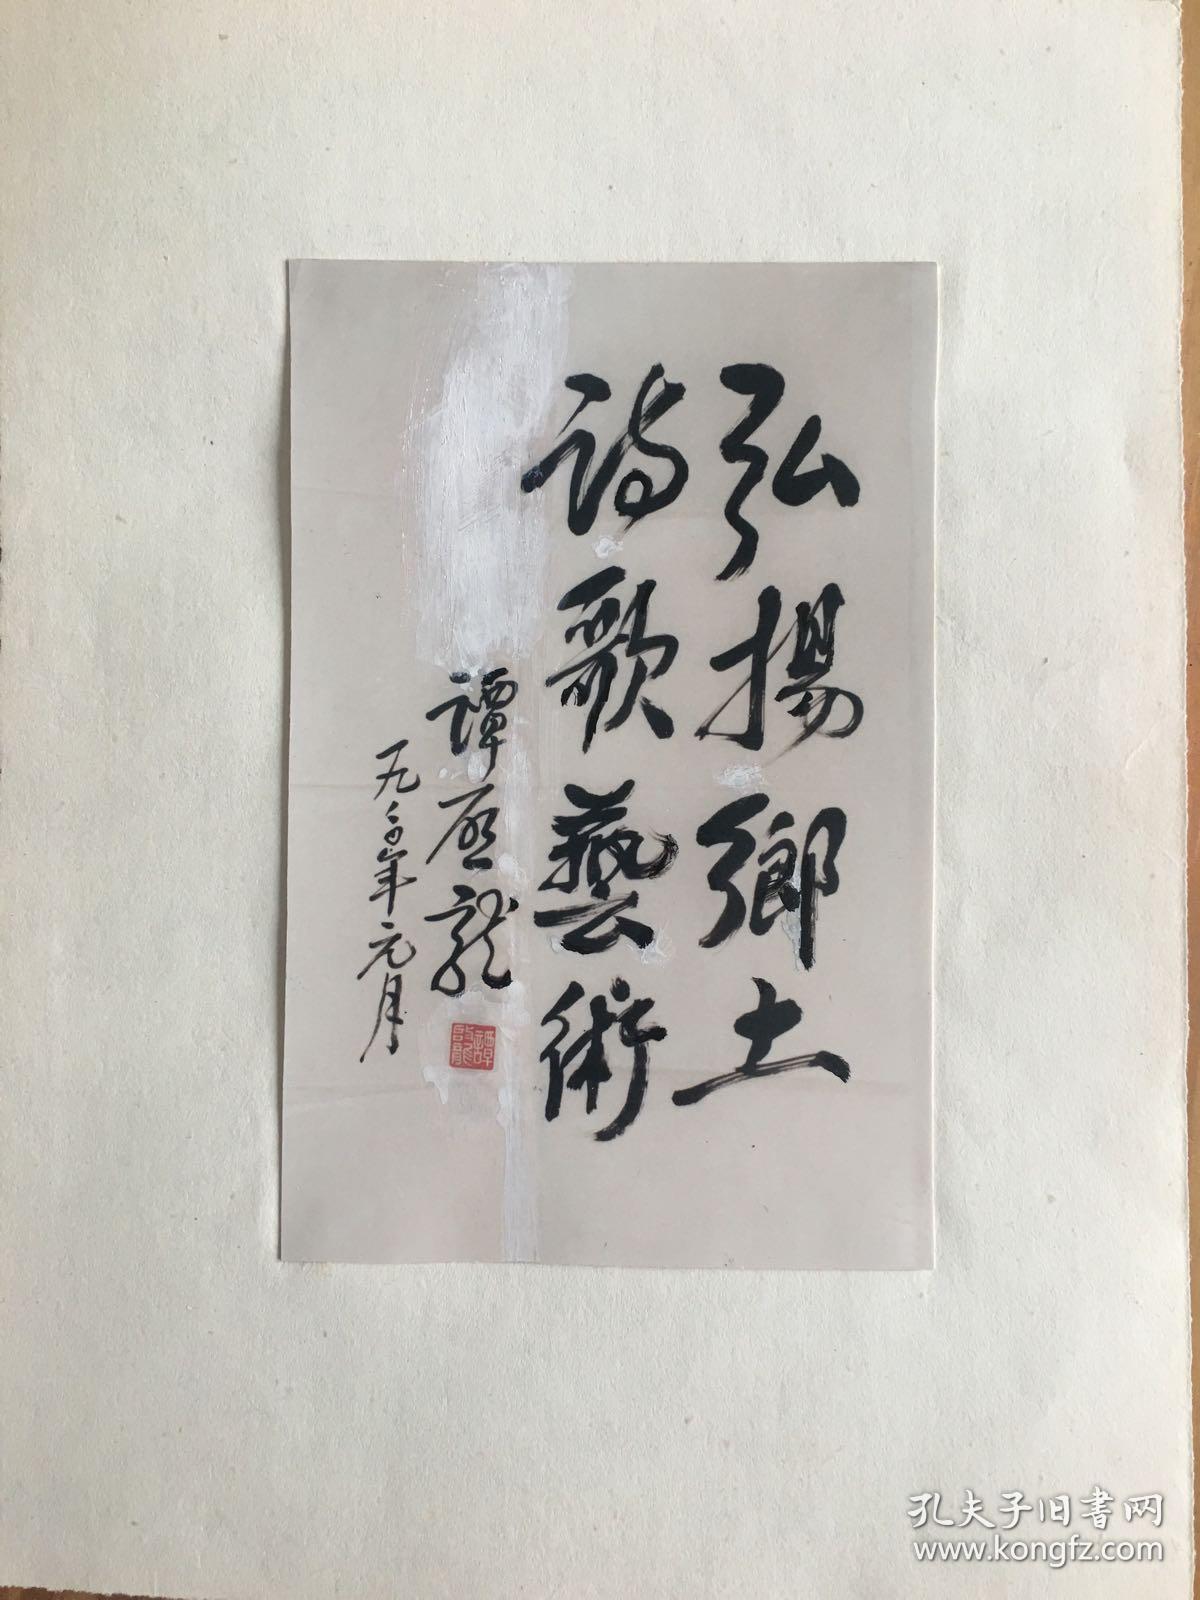 弘揚鄉土
詩歌藝術
譚啟龍
一九九〇年元月
譚啟龍
孔夫子旧书网
www.kongfz.com